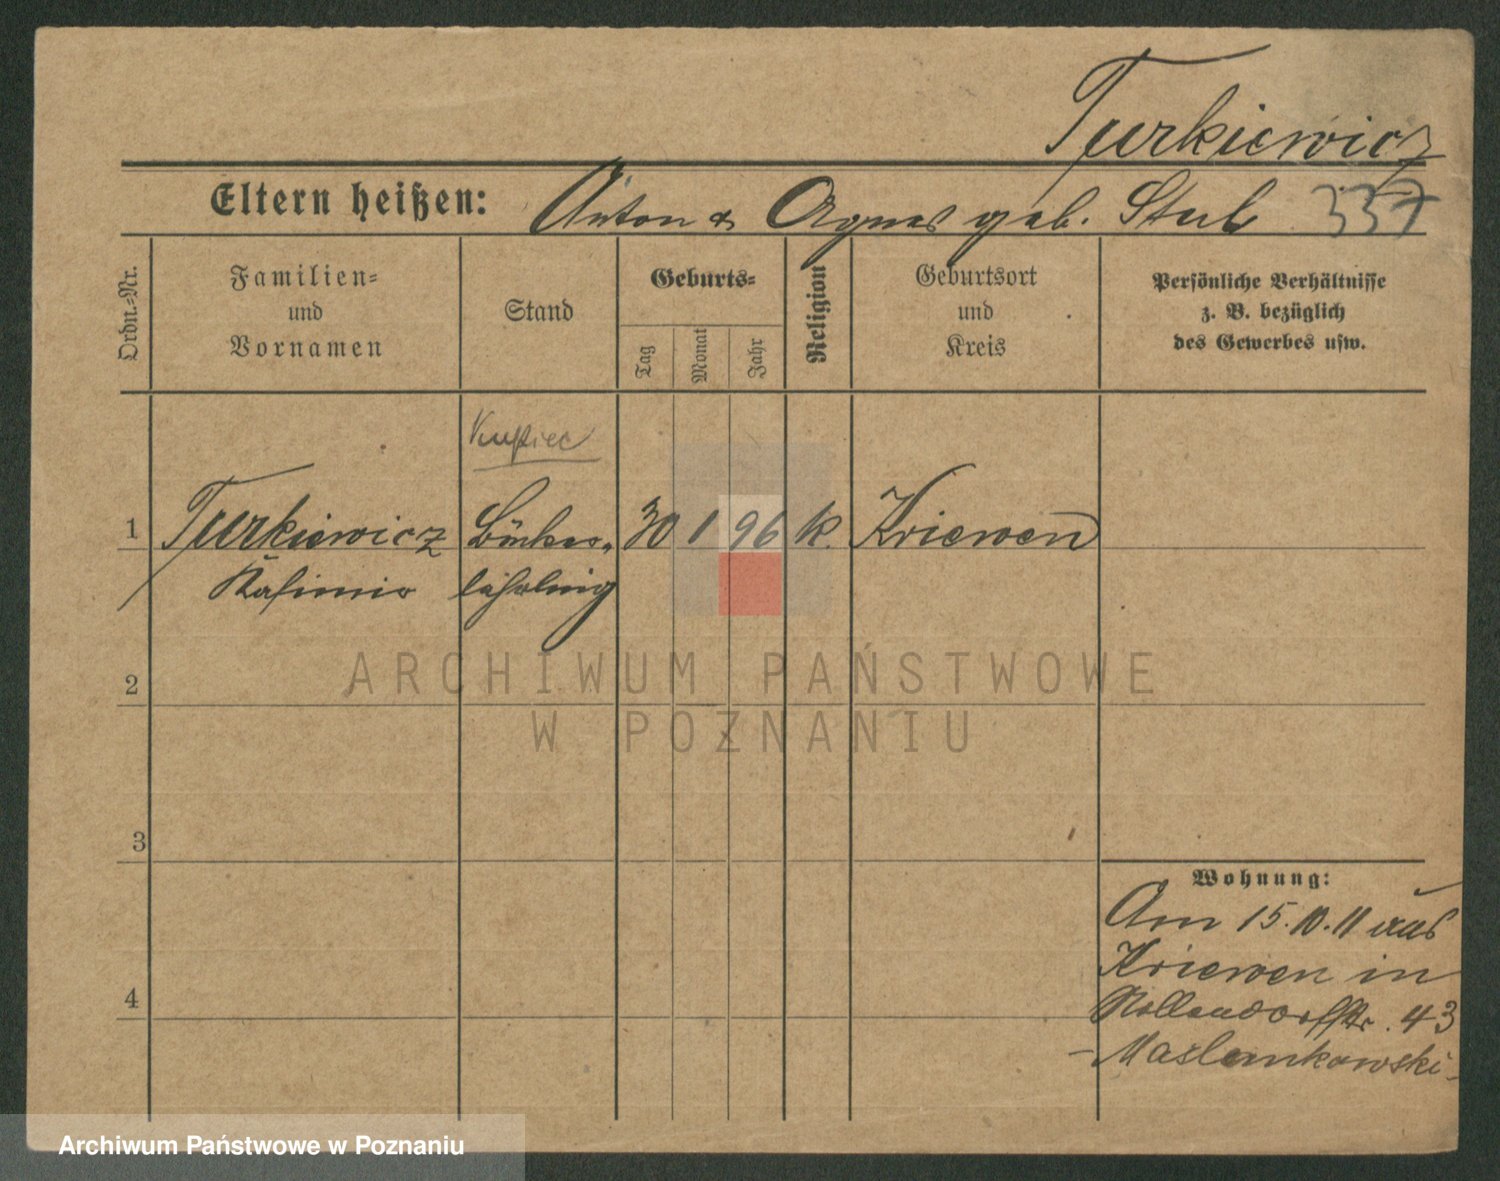 Turkiewicz
Eltern heißen: Anton & Agnes geb. Stub 337
Ordn.-Nr.
Familien-
und
Vornamen
Stand
Geburts-
Tag
Monat
Jahr
Religion
Geburtsort
und
Kreis
Persönliche Verhältnisse
z. B. bezüglich
des Gewerbes usw.
Kupiec
1 Turkiewicz 30 1 96 k. Kriewen
Kasimir lehrling
2
3
4
Wohnung:
Am 15.10.11 aus
Kriewen in
Nollendorfstr. 43
- Maslankowski -
ARCHIWUM PAŃSTWOWE
W POZNANIU
Archiwum Państwowe w Poznaniu